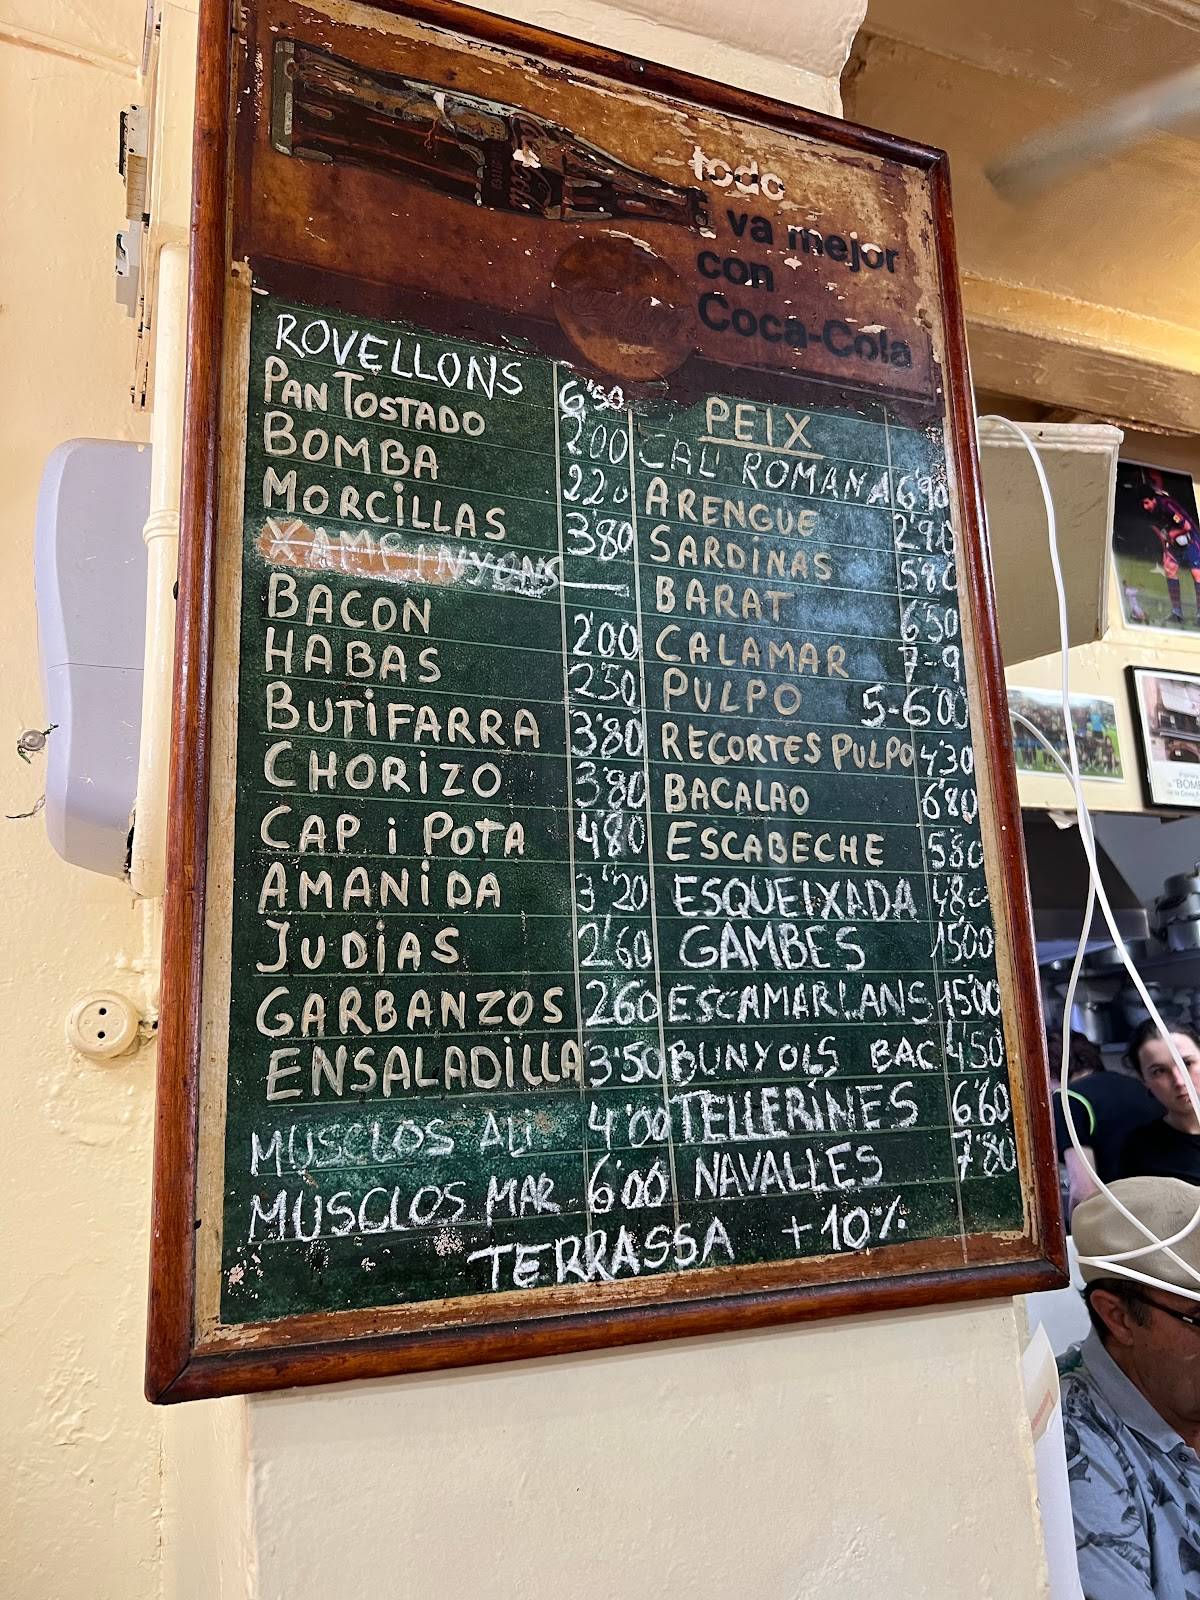 todo
va mejor
con
Coca-Cola
ROVELLONS 6'50
PAN TOSTADO 2'00
BOMBA 2'20
MORCILLAS 3'80
XAMPINYONS —
BACON 2'00
HABAS 2'50
BUTIFARRA 3'80
CHORIZO 3'80
CAP i POTA 4'80
AMANIDA 3'20
JUDIAS 2'60
GARBANZOS 2'60
ENSALADILLA 3'50
MUSCLOS ALI 4'00
MUSCLOS MAR 6'00
PEIX
CAL' ROMANA 6'90
ARENGUE 2'90
SARDINAS 5'80
BARAT 6'50
CALAMAR 7-9
PULPO 5-6'00
RECORTES PULPO 4'30
BACALAO 6'80
ESCABECHE 5'80
ESQUEIXADA 4'80
GAMBES 15'00
ESCAMARLANS 15'00
BUNYOLS BAC 4'50
TELLERINES 6'60
NAVALLES 7'80
TERRASSA +10%
"BOMB